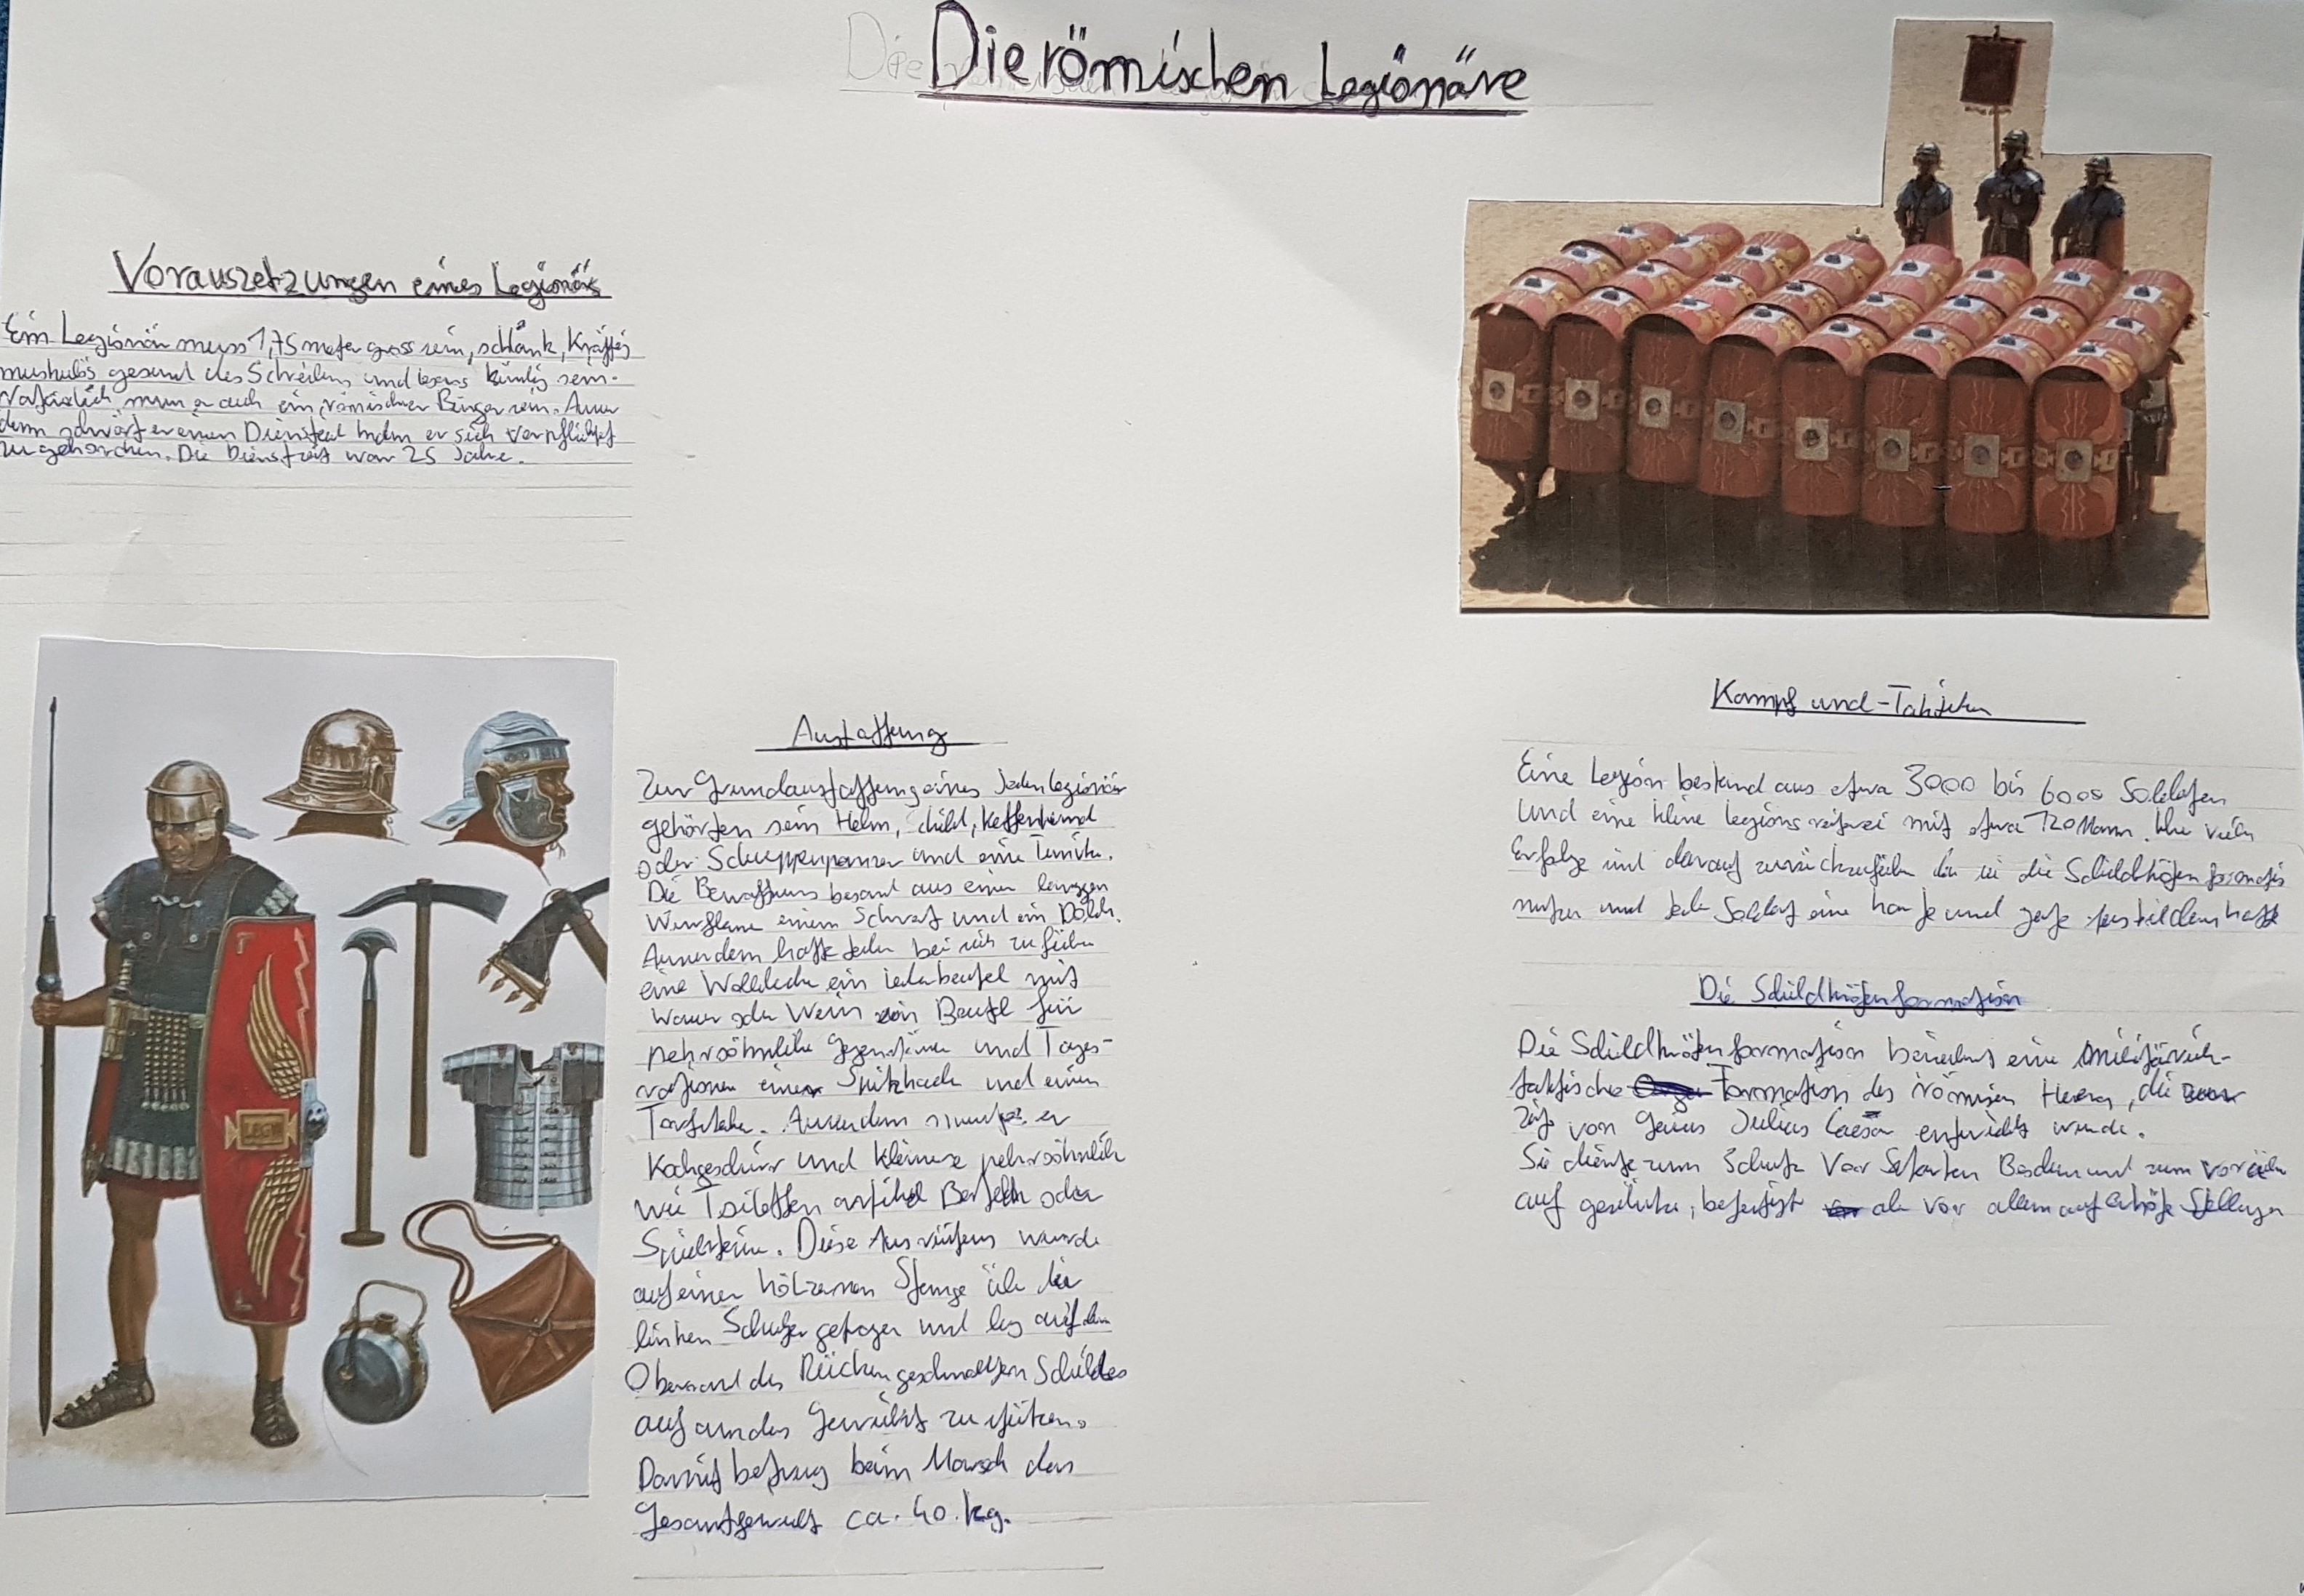 Die römischen Legionäre
Vorauszetzungen eines Legionärs
Ein Legionär muss 1,75 meter gross sein, schlank, Kräftig
muskulös gesund des Schreibens und lesens kündig sein.
Natürlich muss er auch ein römischer Bürger sein. Ausser
dem schwört er einen Diensteid indem er sich verpflichtet
zu gehorchen. Die Dienstzeit war 25 Jahre.
Austattung
Zur Grundaustattung eines Jeden legionär
gehörten sein Helm, child, Kettenhemd
oder Schuppenpanzer und eine Tunika.
Die Bewaffnung besant aus einer langgen
Wurflanze einem Schwert und ein Dolch.
Ausserdem hatte Jeder bei sich zu
eine Wolldecke ein lederbeutel mit
Wasser oder Wein ein Beutel für
pehrsöhnliche Gegenstände und Tages-
rationen einer Spitzhacke und einen
Ausserdem musste er
Kochgeschirr und kleinere pehrsöhnlich
wie Toiletten artikel Besteck oder
Spielsteine. Diese Ausrüstung wurde
auf einer hölzernen Stange über die
linken Schulter getragen und lag auf dem
Oberrand des Rücken geschnallten Schildes
auf um das Gewicht zu stützen.
Damit betrug beim Marsch das
Gesamtgewicht ca. 40. kg.
Kampf und-Taktiken
Eine Legion bestand aus etwa 3000 bis 6000 Soldaten
und eine kleine legionsreiterei mit etwa 120 Mann. Ihre vielen
Erfolge sind darauf zurückzuführen das sie die Schildkröten formation
nutzen und Jeder Soldat eine harte und gute hatte
Die Schildkrötenformation
Die Schildkrötenformation bezeichnet eine militärisch-
taktische Formation des römischen Heeres, die zur
Zeit von Gaius Julius Caesar entwickelt wurde.
Sie diente zum Schutz Vor Beschuss und zum vorrücken
auf gesicherte, befestigte vor allem auf erhöhte Stellungen
LEG III